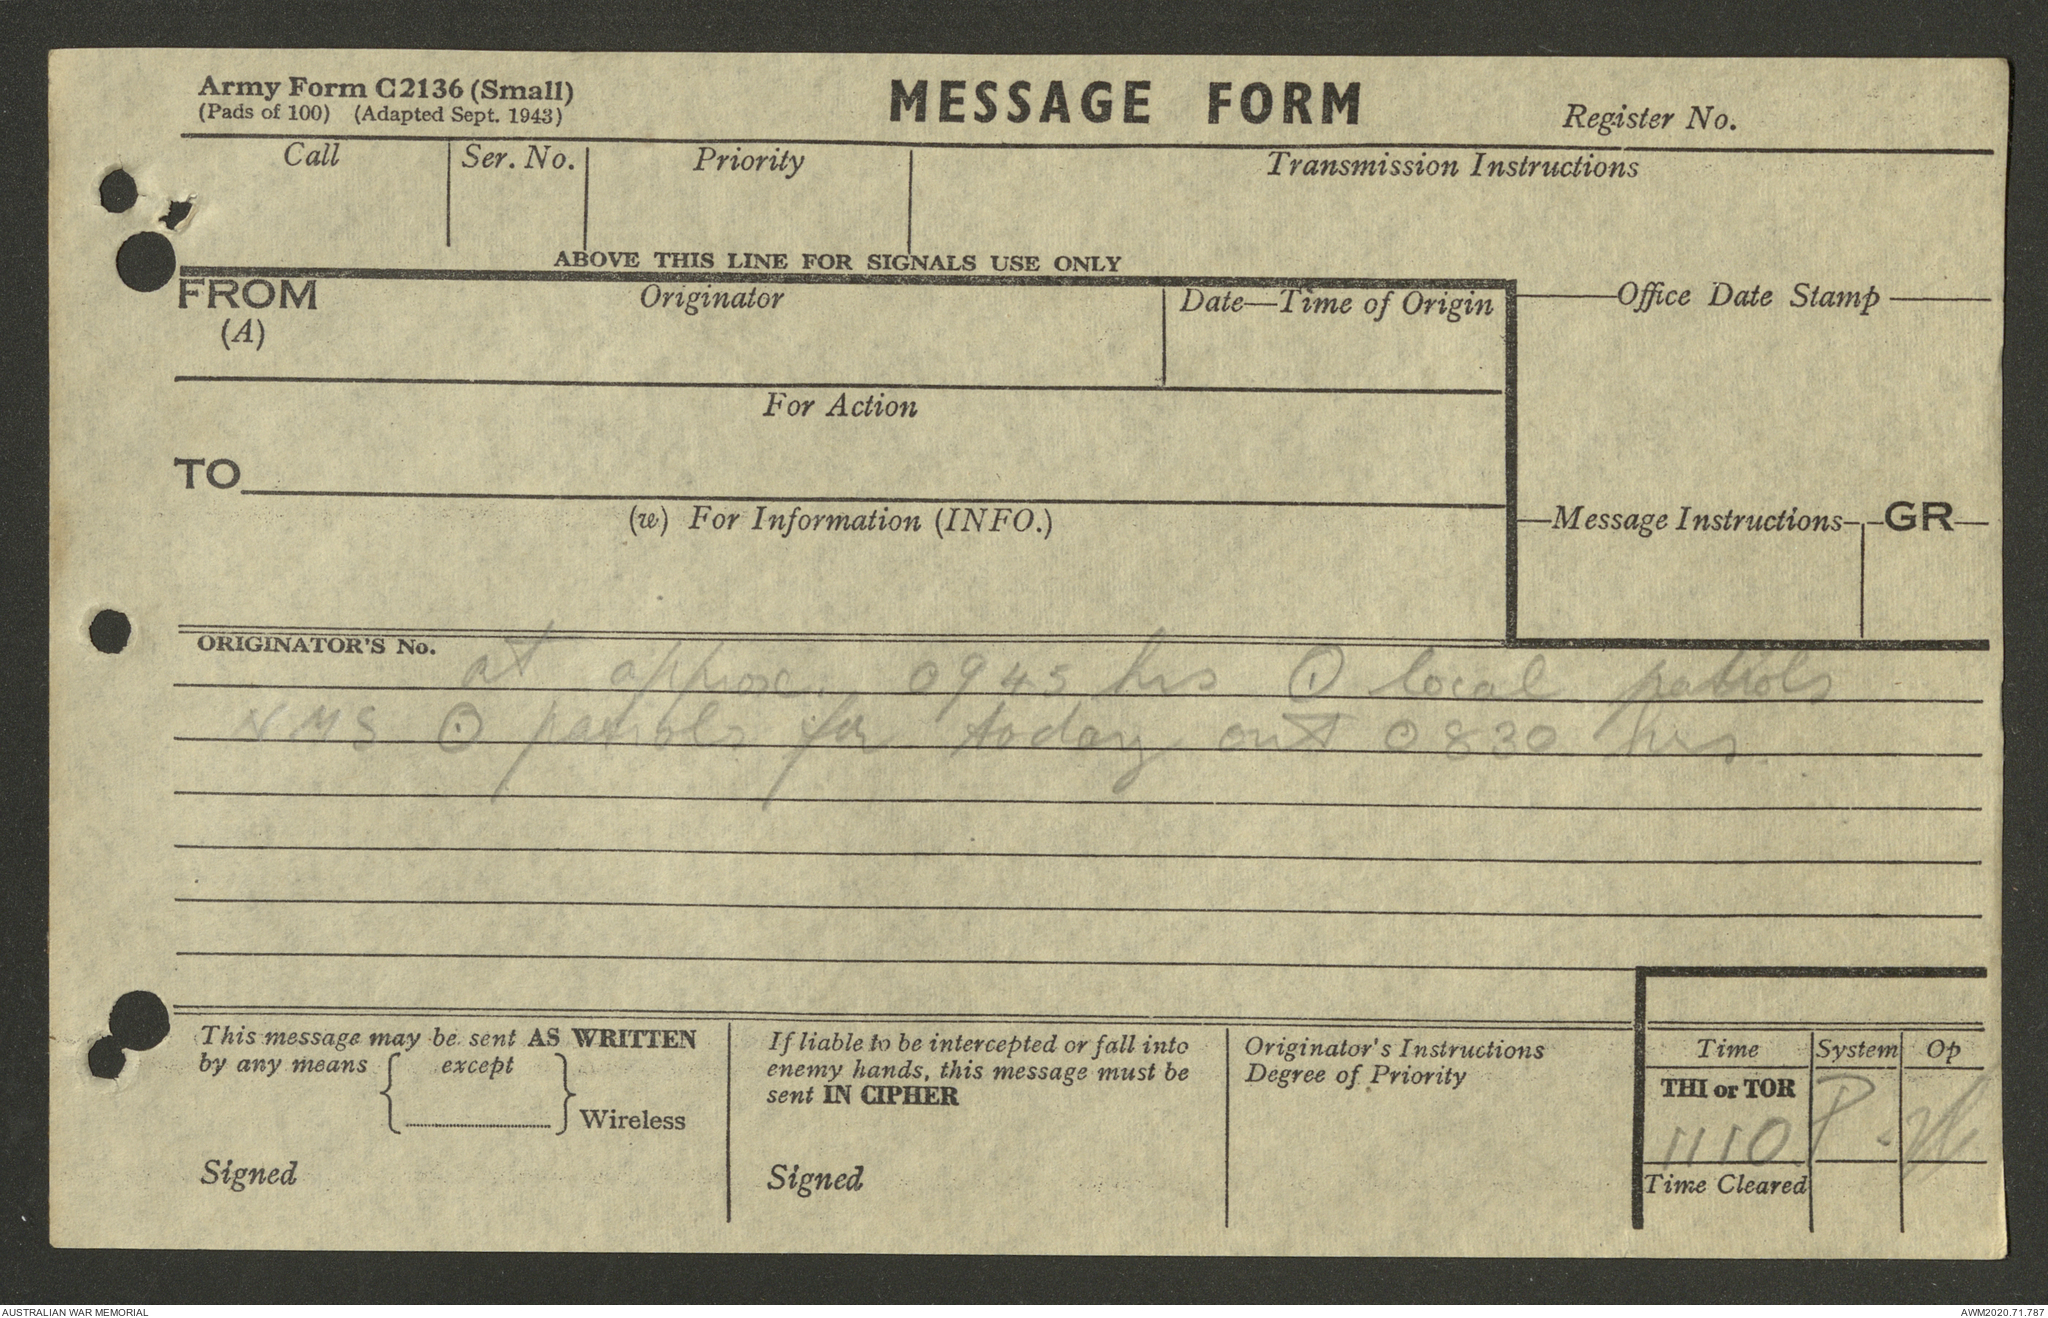 Army Form C2136 (Small)
(Pads of 100) (Adapted Sept. 1943)
MESSAGE FORM
Register No.
Call Ser. No. Priority Transmission Instructions
ABOVE THIS LINE FOR SIGNALS USE ONLY
FROM Originator Date—Time of Origin Office Date Stamp
(A)
For Action
TO
(w) For Information (INFO.) Message Instructions GR
ORIGINATOR'S No.
at approx. 0945 hrs ⊙ local patrols
NMS ⊙ patrols for today out 0830 hrs.
This message may be sent AS WRITTEN
by any means except
Wireless
Signed
If liable to be intercepted or fall into
enemy hands, this message must be
sent IN CIPHER
Signed
Originator's Instructions
Degree of Priority
Time System Op
THI or TOR
1110 P.
Time Cleared
AUSTRALIAN WAR MEMORIAL AWM2020.71.787